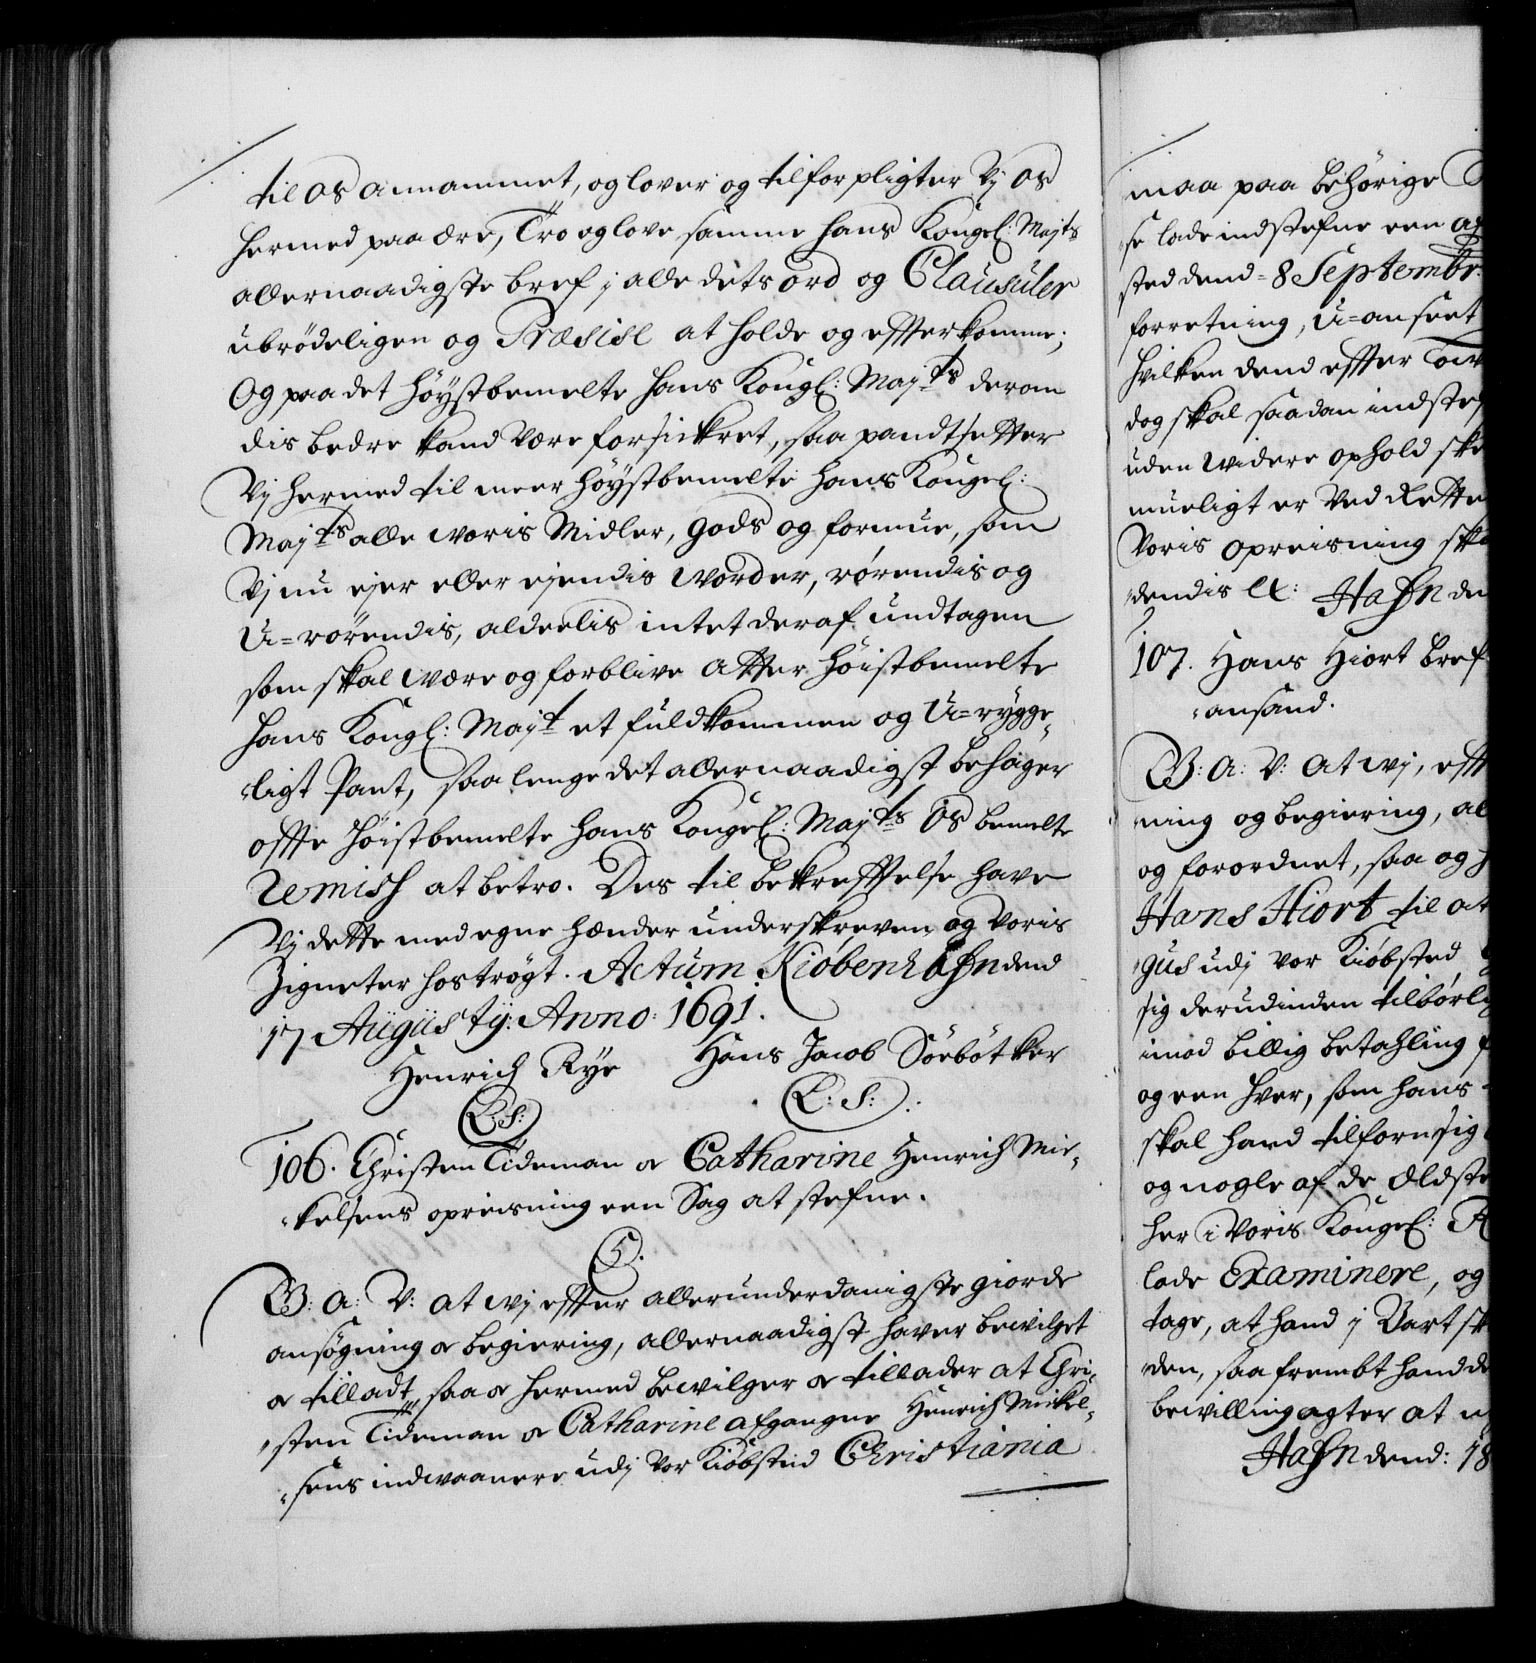 til os annammet, og lover og tilforpligter Vj os
hermed paa ære, Tro og love samme hans Kongel: Majts
allernaadigste bref j alle dets ord og Clausuler
ubrödeligen og Præsise at holde og effterkomme;
Og paa det höystbemelte hans Kongl: Majts derom
dis bedre kand være forsickret, saa pandtsetter
Vj hermed til meer höystbemelte hans Kongel:
Majts alle woris Midler, gods og formue, som
Vj nu ejer eller ejendis worder, rörendis og
U=rörendis, aldeelis intet deraf undtagen
som skal være og forblive after höistbemelte
hans Kongl: Majt et fuldkommen og U=rygge,
ligt Pant, saa lenge det allernaadigst behager
offte höistbemelte hans Kongel: Majts os bemelte
Remiss at betro. Des til bekrefftelse have
Vj dette med egne hænder underskreven og voris
Zigneter hoströgt. Actum Kiöbenhafn dend
17 Augusty: Anno: 1691.
Henrich Rye Hans Jacob Sörbötker
L: S: L: S:
106. Christen Tideman og Catharine Henrich Mic,
kelsens opreisning een Sag at stefne.
G: A: V: at wj effter allerunderdanigste giorde
ansögning og begiering, allernaadigst haver bevilget
og tilladt, saa og hermed bewilger og tillader at Chri,
sten Tideman og Catharine afgangne Henrich Mickel,
sens indvaanere udj vor Kiöbsted Christiania
maa paa behörige
se lade indstefne een af
sted dend = 8 Septembr:
forretning, U=anseet
hvilken dend effter Low
dog skal saadan indstef
uden videre ophold ske
mueligt er Ved Rette
Voris opreisning ska
dendis etc: Hafn de
107. Hans Hiort bref
ansand.
G: A: V: at wj, efft
ning og begiering, al
og forordnet, saa og h
Hans Hiort til at
gus udj vor Kiöbsted
sig derudinden tilbörli
imod billig betahling f
og een hver, som hans
skal hand tilforn sig
og nogle af de ældste
her i Voris Kongel: R
lade Examinere, og
tage, at hand j Bart sk
den, saafrembt hand de
bewilling agter at n
Hafn dend: 18